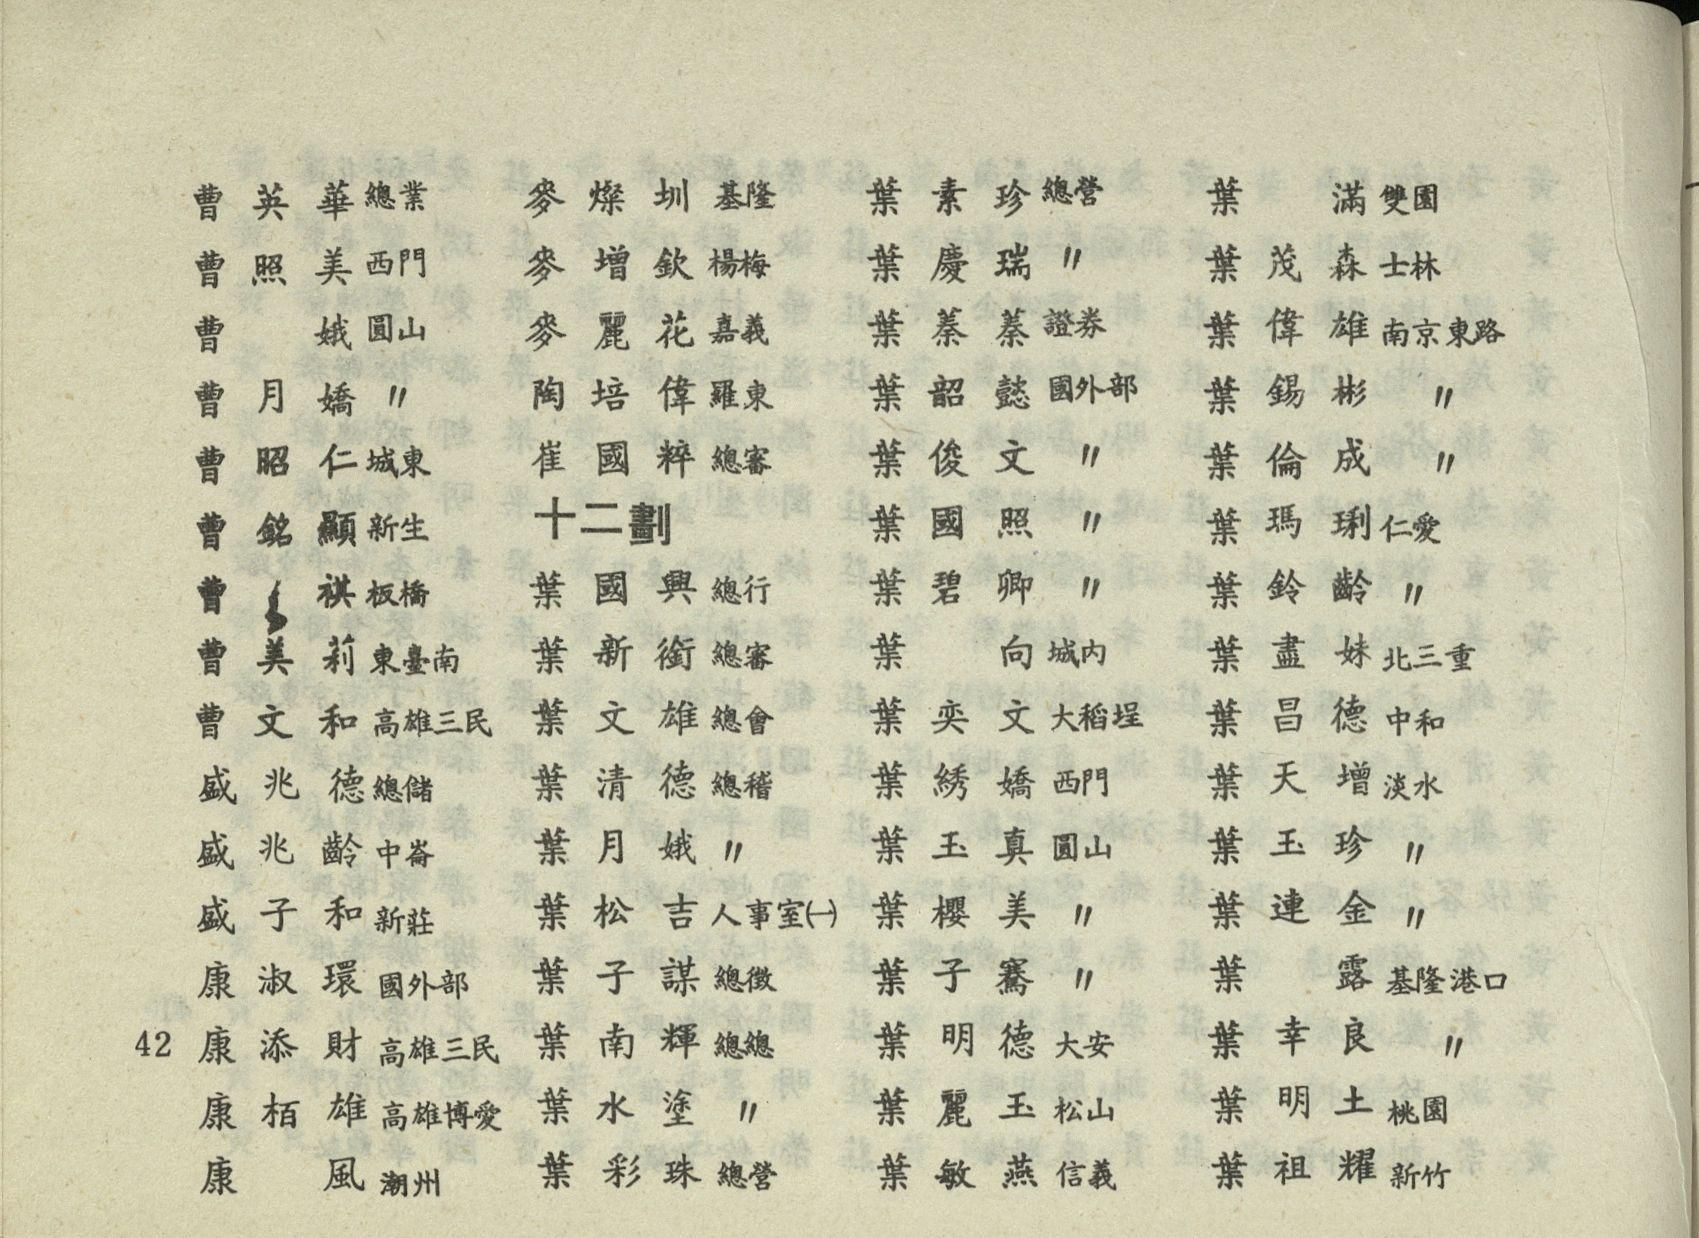 曹英華 總業
曹照美 西門
曹　娥 圓山
曹月嬌 〃
曹昭仁 城東
曹銘顯 新生
曹　祺 板橋
曹美莉 東臺南
曹文和 高雄三民
盛兆德 總儲
盛兆齡 中崙
盛子和 新莊
康淑環 國外部
康添財 高雄三民
康栢雄 高雄博愛
康　風 潮州
麥燦圳 基隆
麥增欽 楊梅
麥麗花 嘉義
陶培偉 羅東
崔國粹 總審
十二劃
葉國興 總行
葉新銜 總審
葉文雄 總會
葉清德 總稽
葉月娥 〃
葉松吉 人事室㈠
葉子謀 總徵
葉南輝 總總
葉水塗 〃
葉彩珠 總營
葉素珍 總營
葉慶瑞 〃
葉蓁蓁 證券
葉韶懿 國外部
葉俊文 〃
葉國照 〃
葉碧卿 〃
葉　向 城內
葉奕文 大稻埕
葉綉嬌 西門
葉玉真 圓山
葉櫻美 〃
葉子騫 〃
葉明德 大安
葉麗玉 松山
葉敏燕 信義
葉　滿 雙園
葉茂森 士林
葉偉雄 南京東路
葉錫彬 〃
葉倫成 〃
葉瑪琍 仁愛
葉鈴齡 〃
葉盡妹 北三重
葉昌德 中和
葉天增 淡水
葉玉珍 〃
葉連金 〃
葉　露 基隆港口
葉幸良 〃
葉明土 桃園
葉祖耀 新竹
42